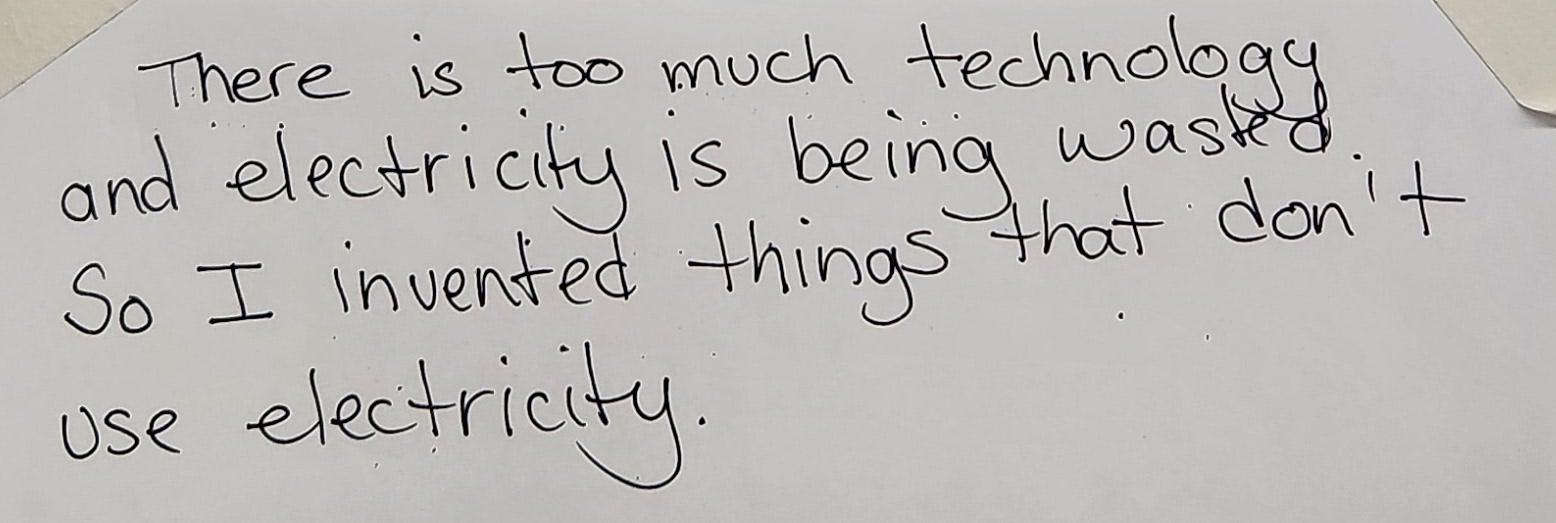 There is too much technology
and electricity is being wasted.
So I invented things that don't
use electricity.